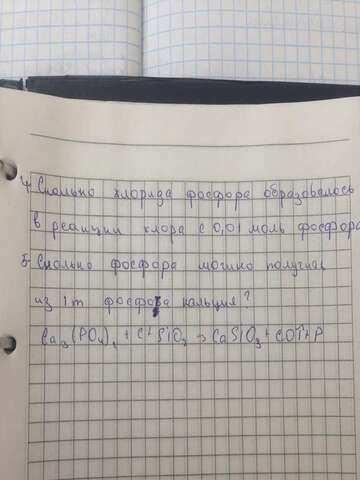 4. Сколько хлорида фосфора образовалось
в реакции хлора с 0,01 моль фосфора
5. Сколько фосфора можно получить
из 1 т фосфата кальция?
Ca₃(PO₄)₂ + C + SiO₂ → CaSiO₃ + CO↑ + P